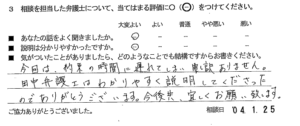 3 相談を担当した弁護士について、当てはまる評価に○(⊙)をつけてください。
大変よい よい 普通 やや悪い 悪い
■ あなたの話をよく聞きましたか。 ○
■ 説明は分かりやすかったですか。 ○
■ 気がついたことがありましたら、どのようなことでも結構ですからお書きください。
今日は、約束の時間に遅れてしまい申訳ありません。
田中弁護士はわかりやすく説明してくださった
のでありがとうございます。今後共、宜しくお願い致します。
ご協力ありがとうございました。 相談日 04.1.25